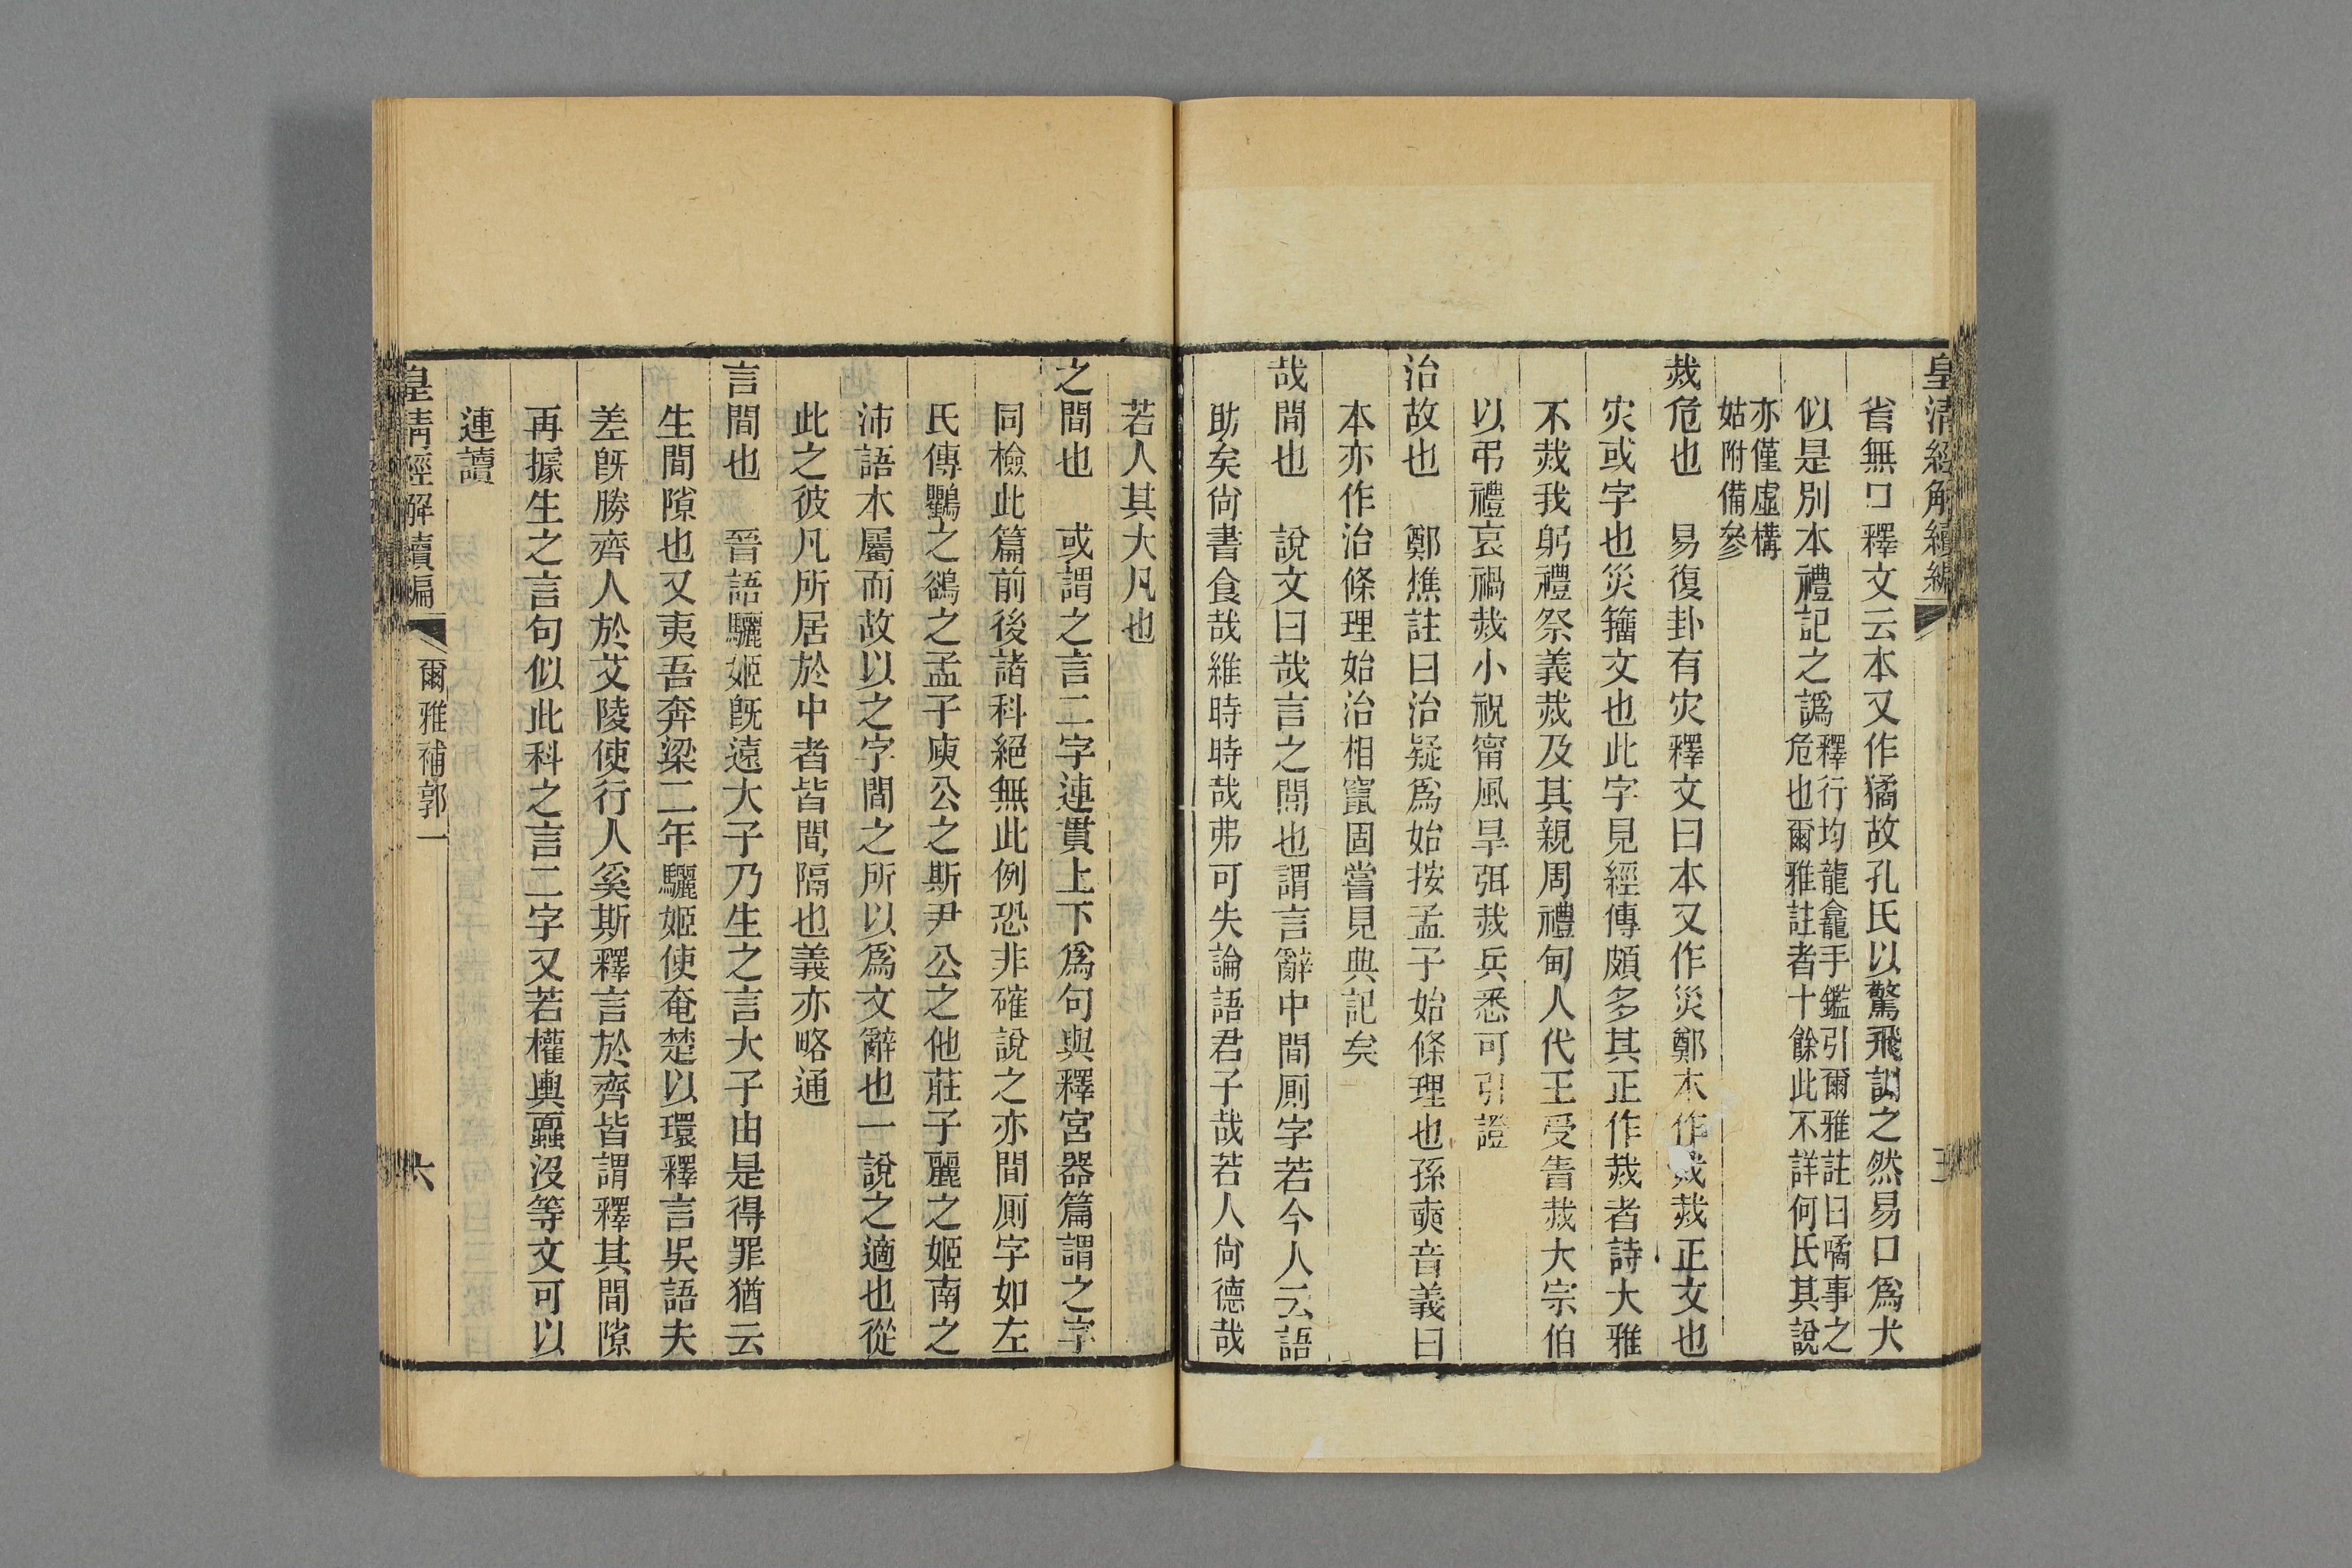 皇清經解續編
省無口釋文云本又作獝故孔氏以驚飛訓之然易口爲犬
似是別本禮記之譌釋行均龍龕手鑑引爾雅註曰噊事之
危也爾雅註者十餘此不詳何氏其說
亦僅虛構
姑附備參
烖危也 易復卦有灾釋文曰本又作災鄭本作烖烖正文也
灾或字也災籀文也此字見經傳頗多其正作烖者詩大雅
不烖我躬禮祭義烖及其親周禮甸人代王受眚烖大宗伯
以弔禮哀禍烖小祝甯風旱弭烖兵悉可引證
治故也 鄭樵註曰治疑爲始按孟子始條理也孫奭音義曰
本亦作治條理始治相竄固嘗見典記矣
哉間也 說文曰哉言之閒也謂言辭中間厠字若今人云語
助矣尙書食哉維時時哉弗可失論語君子哉若人尙德哉
若人其大凡也
之間也 或謂之言二字連貫上下爲句與釋宮器篇謂之字
同檢此篇前後諸科絕無此例恐非確說之亦間厠字如左
氏傳鸜之鵒之孟子庾公之斯尹公之他莊子麗之姬南之
沛語本屬而故以之字間之所以爲文辭也一說之適也從
此之彼凡所居於中者皆間隔也義亦略通
言間也 晉語驪姬旣遠大子乃生之言大子由是得罪猶云
生間隙也又夷吾奔梁二年驪姬使奄楚以環釋言吳語夫
差旣勝齊人於艾陵使行人奚斯釋言於齊皆謂釋其間隙
再據生之言句似此科之言二字又若權輿蠠沒等文可以
連讀
皇清經解續編 爾雅補郭一 六